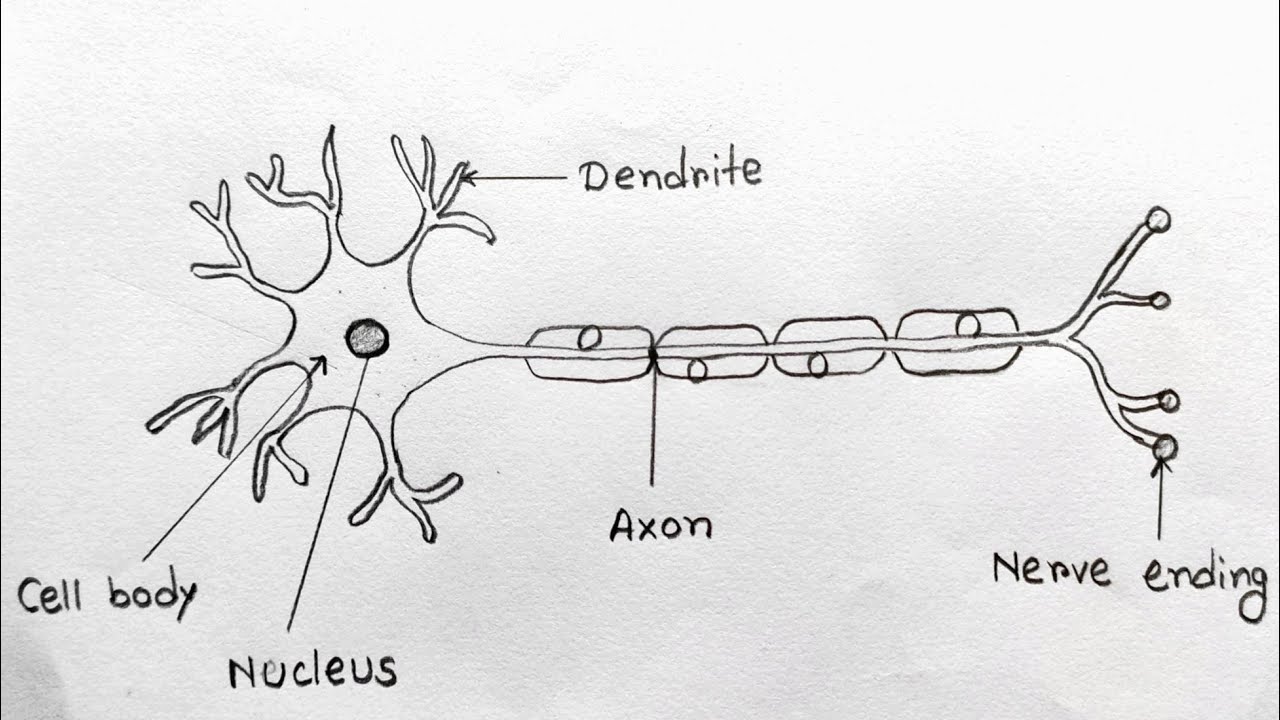 Dendrite
Axon
Nerve ending
Cell body
Nucleus